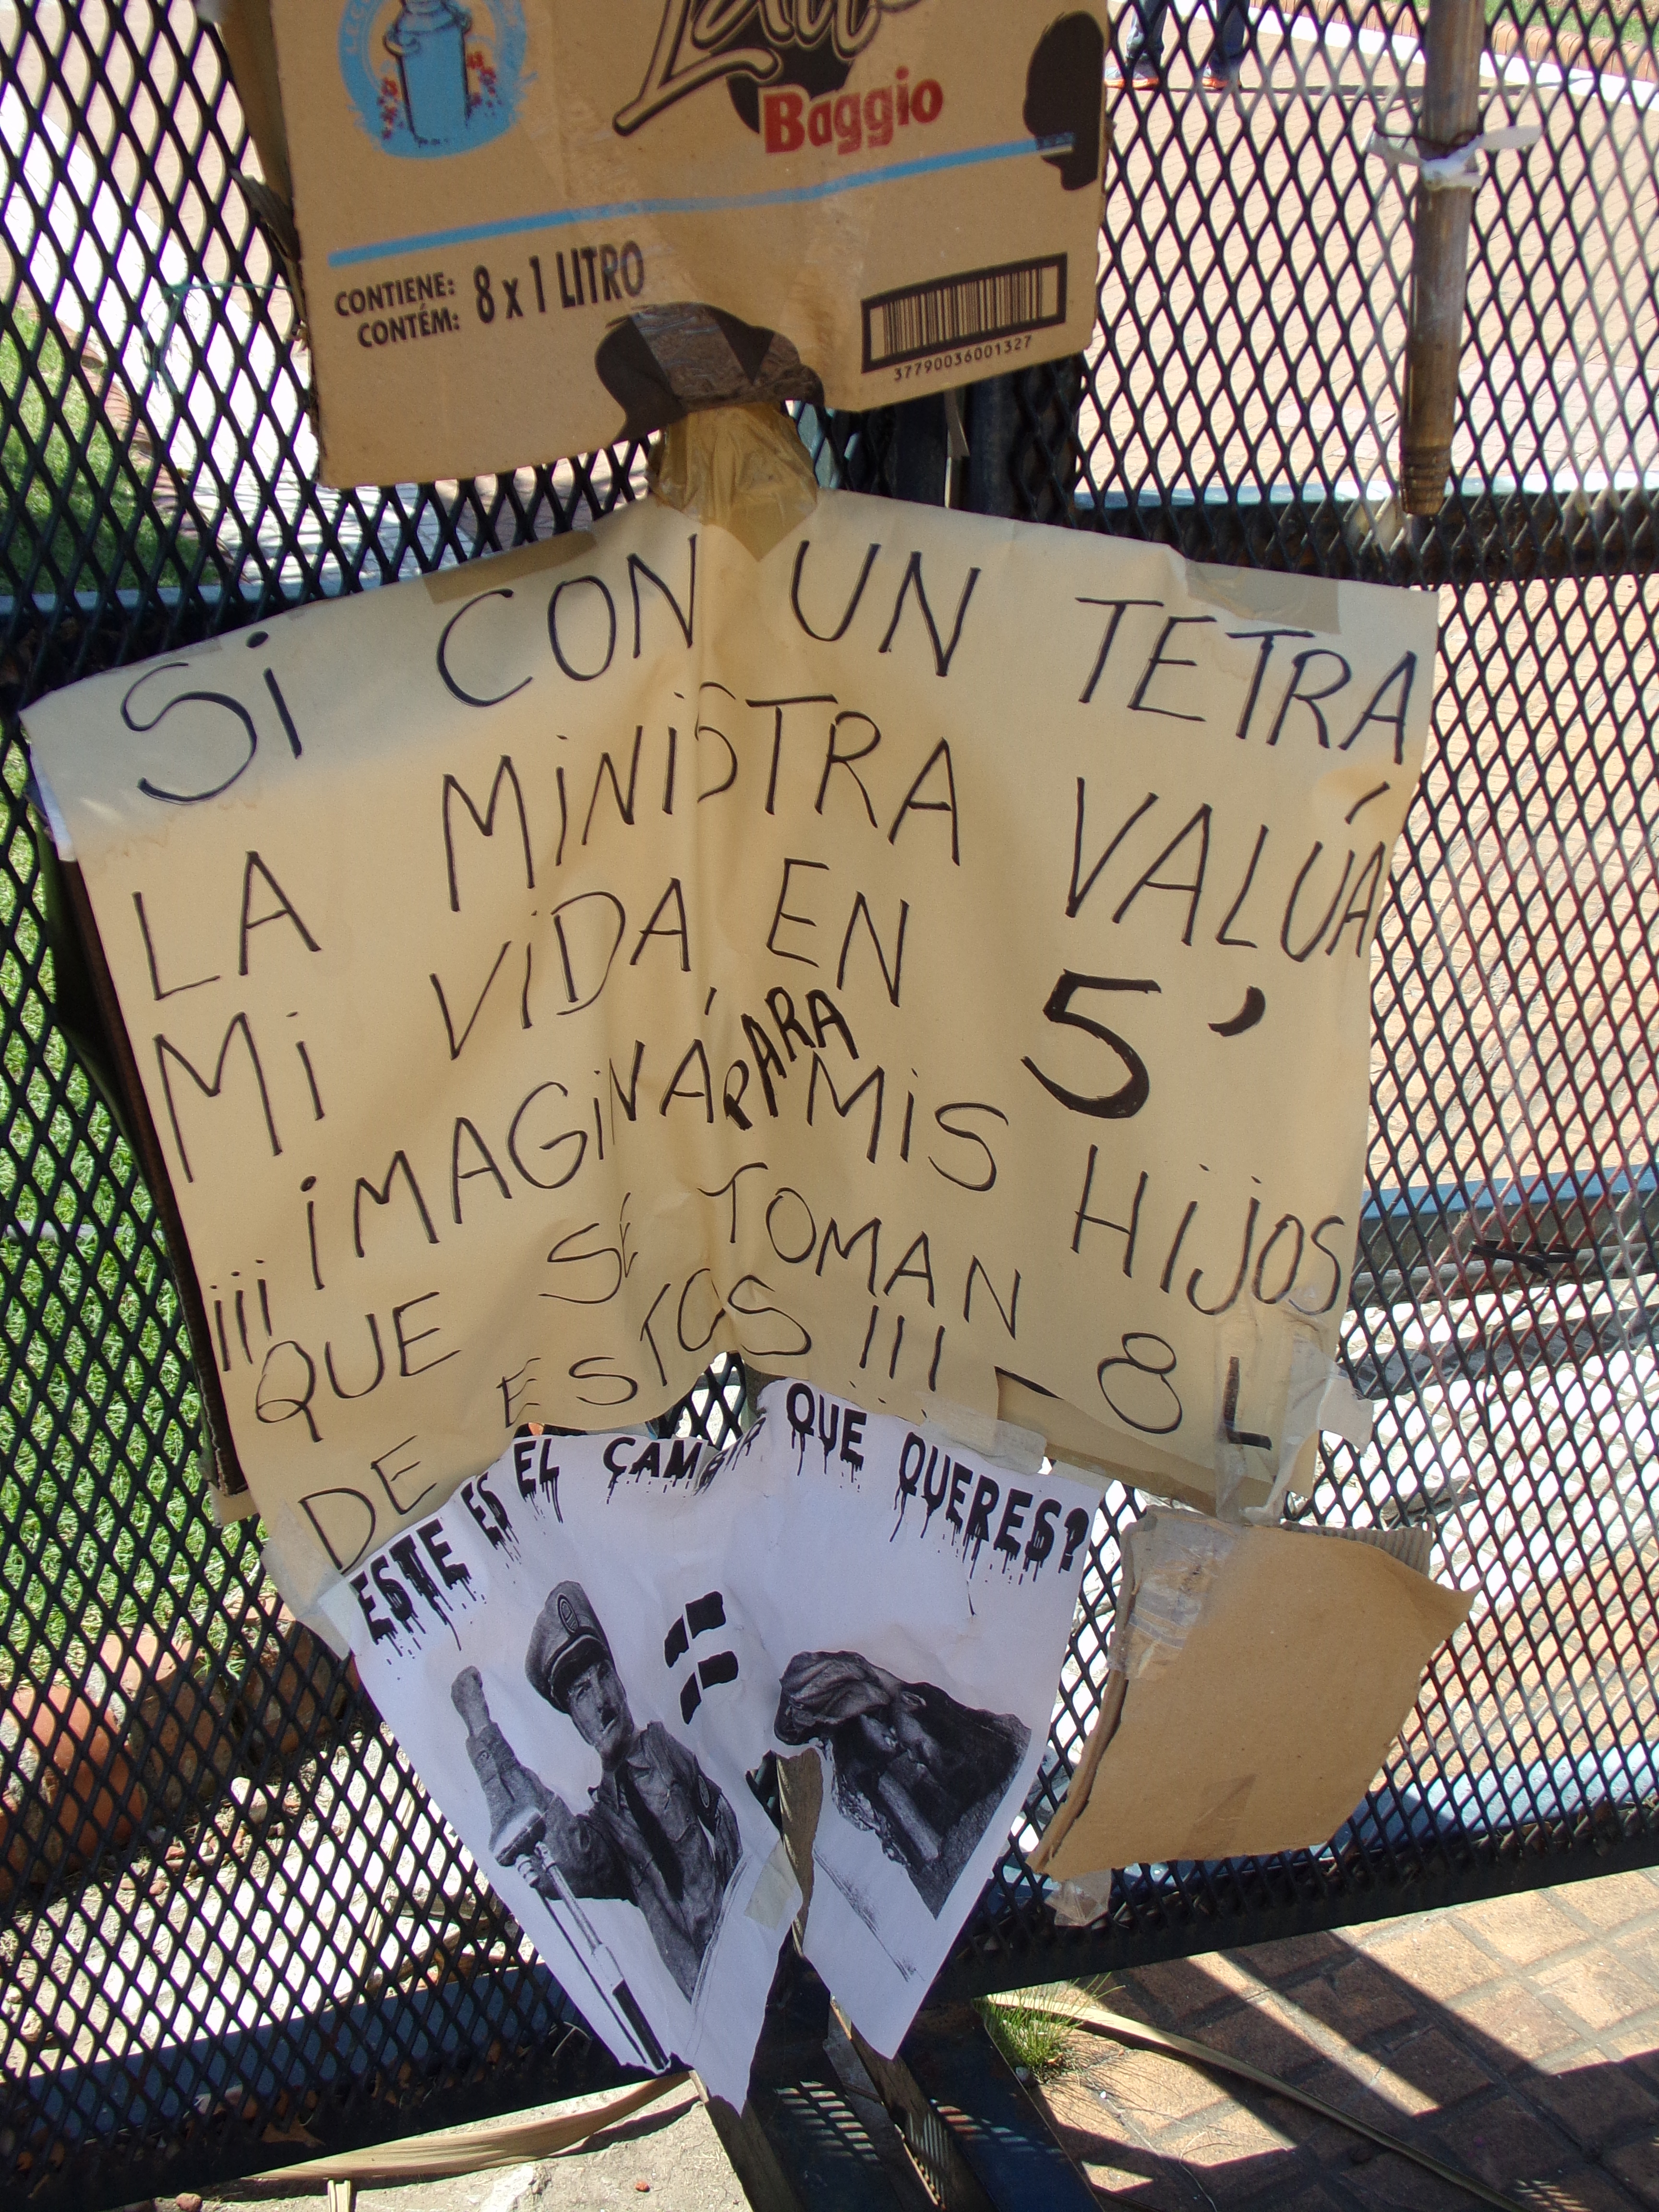 Baggio
CONTIENE: 8 x 1 LITRO
CONTÉM:
37790036001327
Si CON UN TETRA
LA MiNiSTRA VALÚA
Mi ViDA EN 5'
¡¡¡ iMAGiNÁ PARA MiS HijOS
QUE SE TOMAN 8 L
DE ESTOS !!! –
ESTE ES EL CAMBIO QUE QUERES?